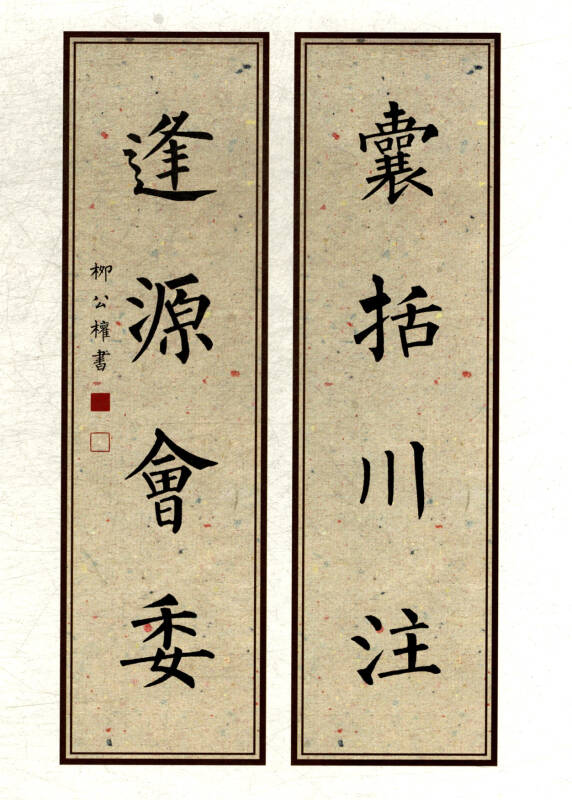 囊括川注
逢源會委
柳公權書